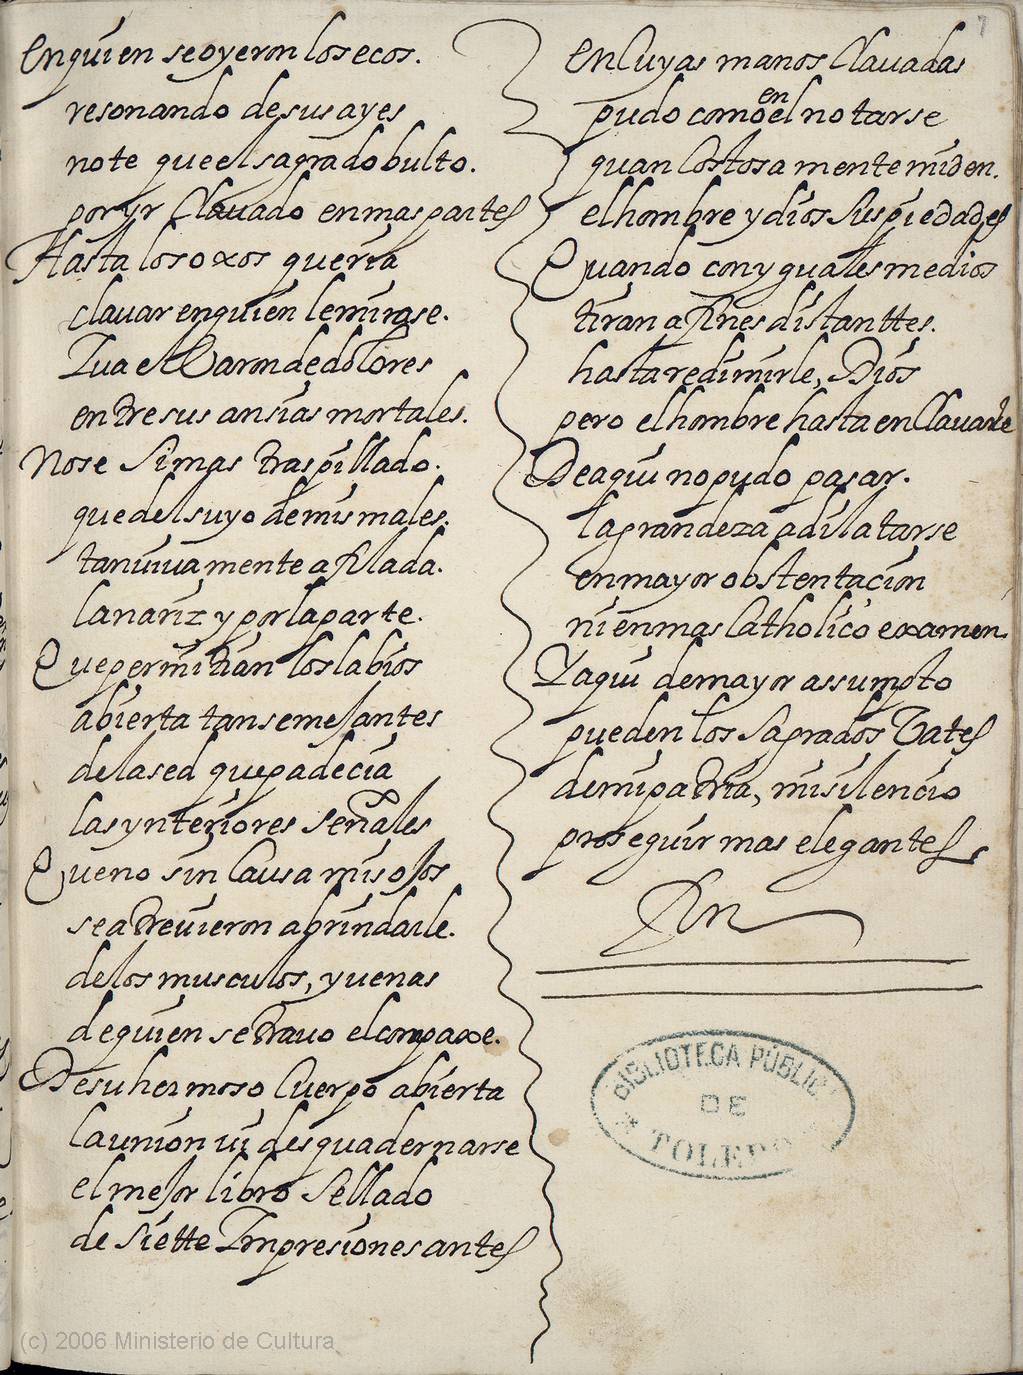 7
en quien se oyeron los ecos.
resonando de sus ayes
note que el sagrado bulto.
por yr Clauado en mas partes
Hasta los oxos queria
clauar en quien le mirase.
Iua el Baron de dolores
entre sus ansias mortales.
No se Si mas traspillado.
que del suyo de mis males.
tan viuamente afilada.
la nariz y por la parte.
Que permitian los labios
abierta tan semejantes
de la sed que padecia
las ynteriores señales
Que no sin Causa mis ojos
se atreuieron a brindarle.
de los musculos, y uenas
de quien se trauo el compaxe.
De su hermoso Cuerpo abierta
la union vi desquadernarse
el mejor libro Sellado
de Siette Impresiones antes
en Cuyas manos Clauadas
en
pudo como el notarse
quan Costosamente miden.
el hombre y dios Sus piedades
Quando con yguales medios
tiran a fines distanttes.
hasta redimirle, Dios
pero el hombre hasta enClauarle
De aqui no pudo pasar.
la grandeza a dilatarse
en mayor obstentacion
ni en mas Catholico examen.
Y aqui de mayor assumpto
pueden los Sagrados Vates
de mi patria, mi silencio
proseguir mas elegantes.
Fin
BIBLIOTECA PÚBLIC
DE
TOLEDO
(c) 2006 Ministerio de Cultura